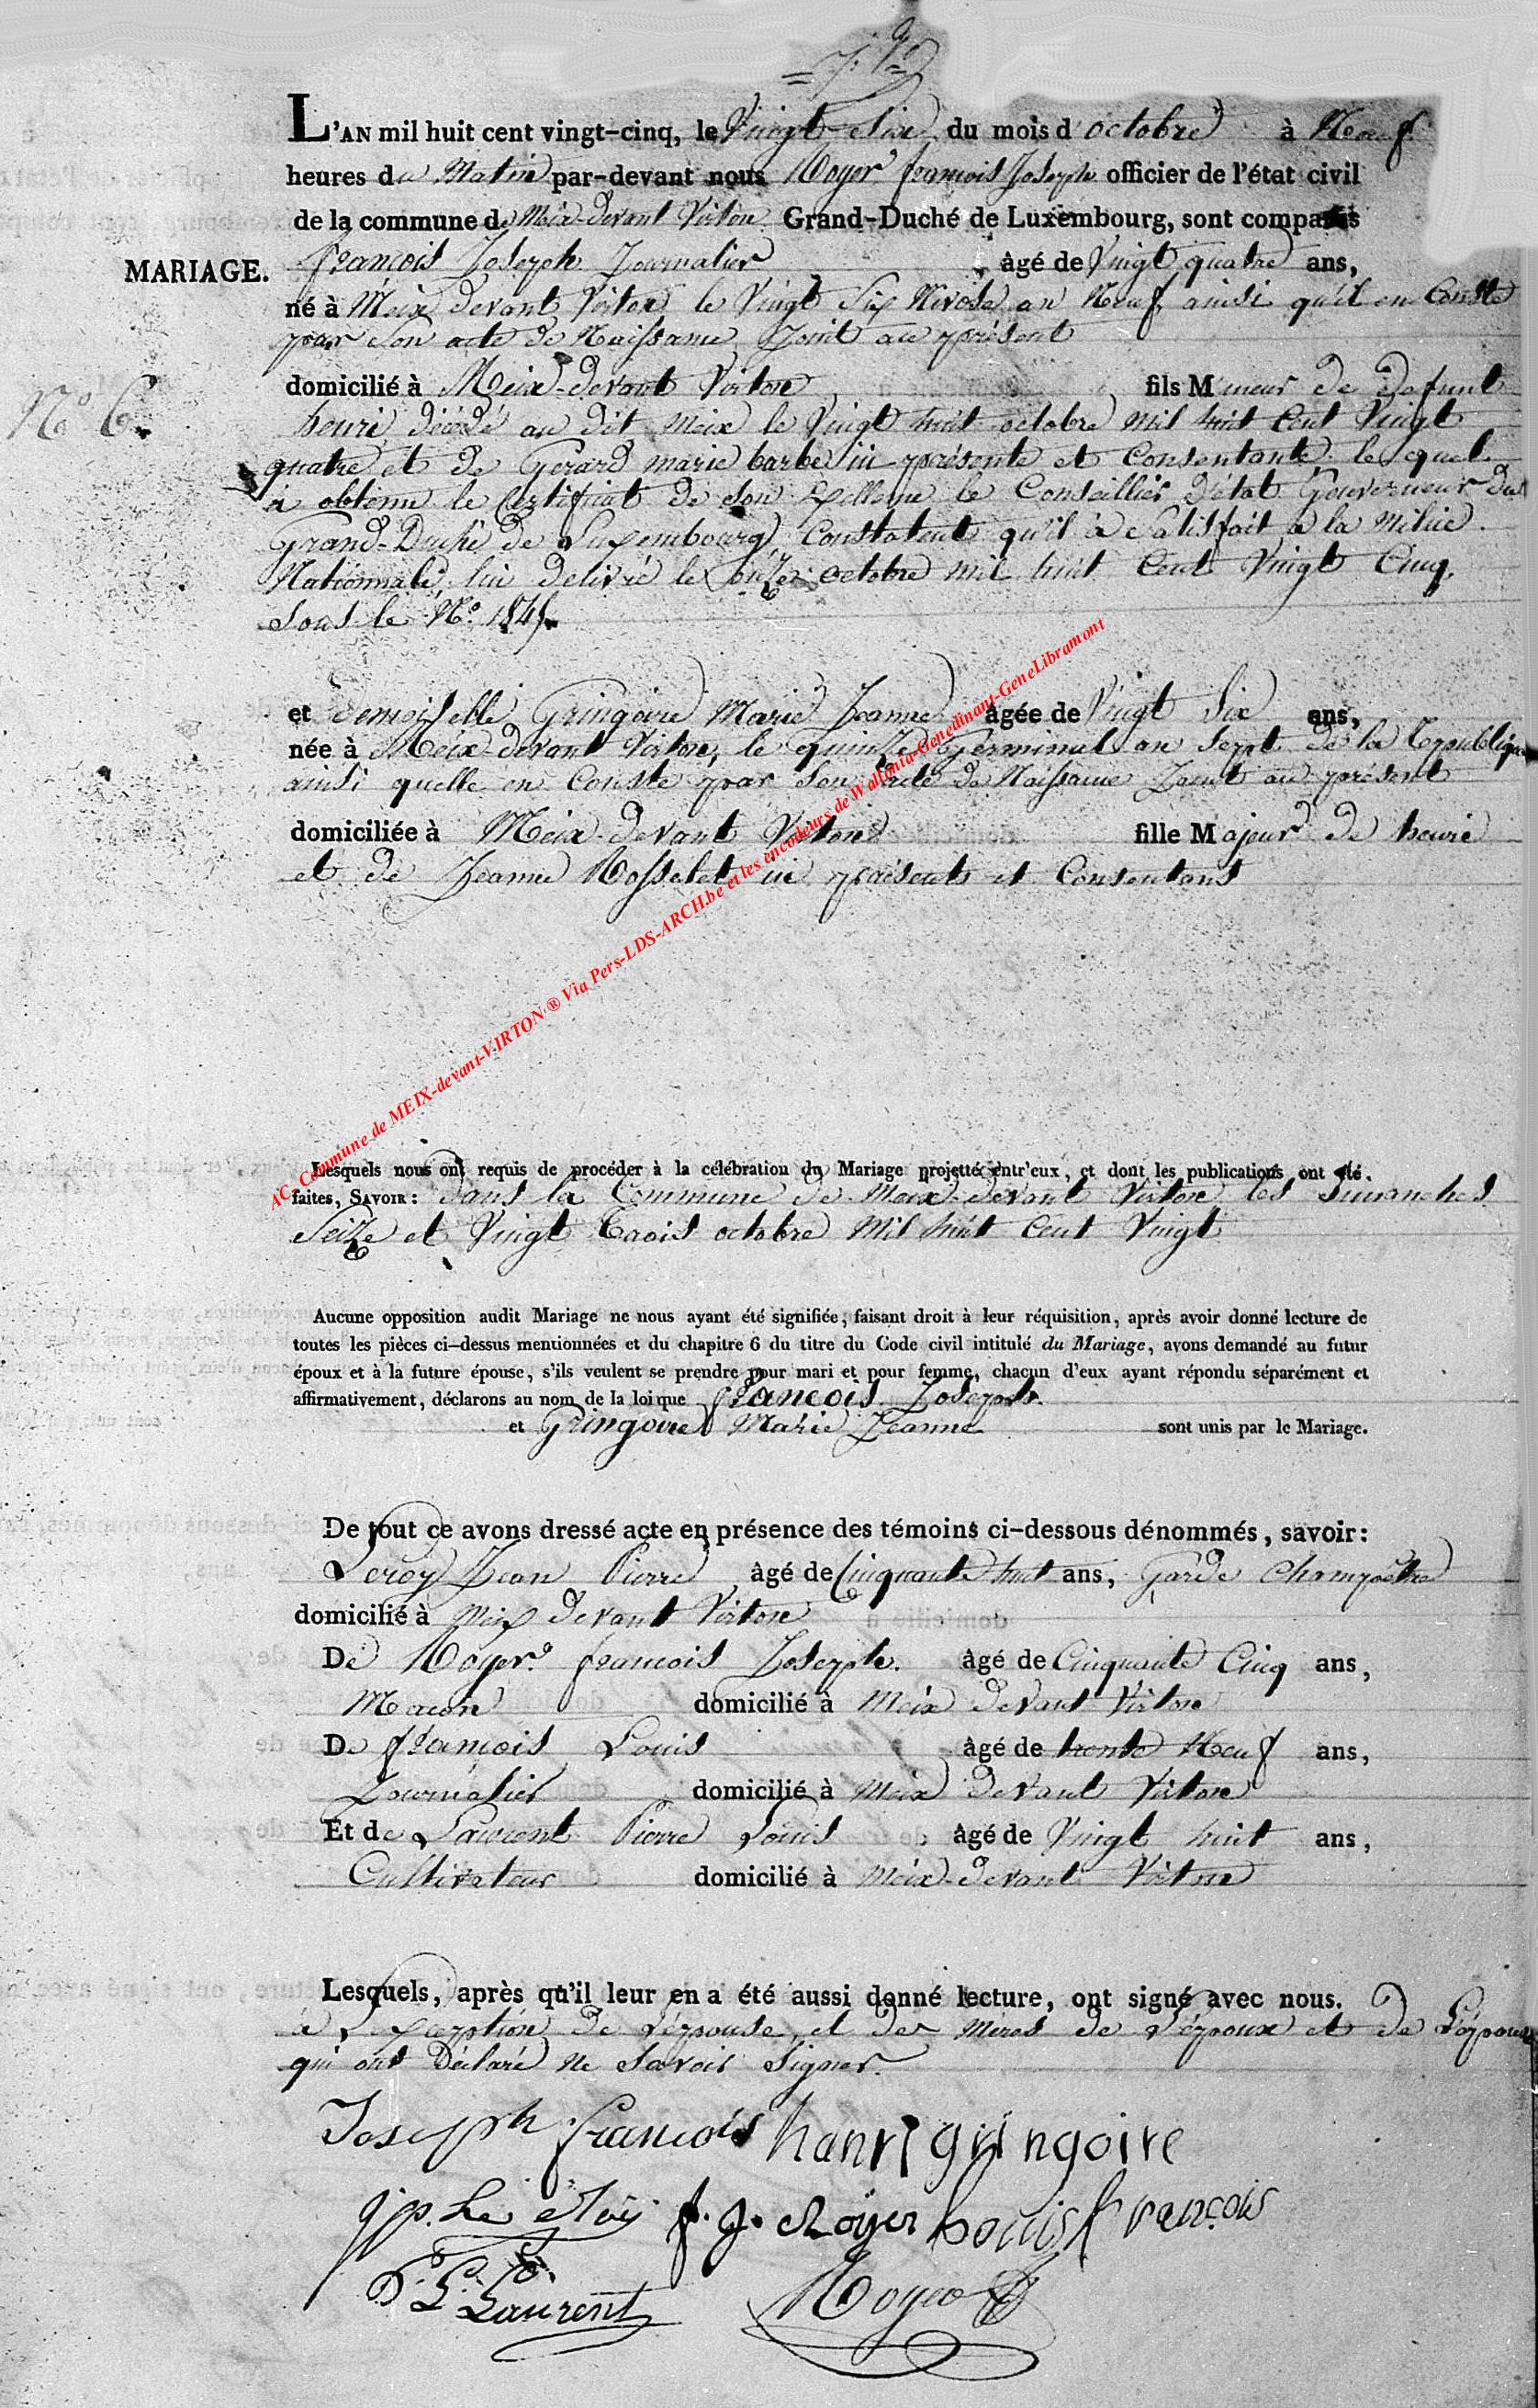 L'AN mil huit cent vingt-cinq, le Vingt Six du mois d'octobre à Neuf
heures du Matin par-devant nous Royer françois Joseph officier de l'état civil
de la commune de Meix-devant Virton Grand-Duché de Luxembourg, sont comparus
MARIAGE. françois Joseph Journalier âgé de Vingt quatre ans,
né à Meix devant Virton le Vingt Six Nivose an Neuf ainsi qu'il en Conste
par Son acte de Naissance Joint au présent
domicilié à Meix-devant Virton fils Mineur de defunt
No 6.
henri décédé au dit Meix le Vingt huit octobre mil huit Cent Vingt
quatre et de Gerard marie barbe ici présente et Consentante le quel
à obtenu le Certificat de Son Excellence le Conseillier d'état Gouverneur du
Grand-Duché de Luxembourg Constatent qu'il à Satisfait à la Milice
Nationnale, lui delivré le onze octobre mil huit Cent Vingt Cinq,
Sous le No.
et demoiselle Gringoire Marie Jeanne âgée de Vingt Six ans,
née à Meix-devant Virton, le quinze Germinal an Sept de la République
ainsi quelle en Conste par Son acte de Naissance Joint au présent
domiciliée à Meix-devant Virton fille Majeur de henri
et de Jeanne Rosselet ici présents et Consentans
AC Commune de MEIX-devant-VIRTON ® Via Pers-LDS-ARCH.be et les encodeurs de Wallonia-Genedinant-GeneLibramont
Lesquels nous ont requis de procéder à la célébration du Mariage projetté entr'eux, et dont les publications ont été
faites, SAVOIR : dans la Commune de Meix-devant Virton les dimanches
Seize et Vingt Trois octobre Mil huit Cent Vingt
Aucune opposition audit Mariage ne nous ayant été signifiée, faisant droit à leur réquisition, après avoir donné lecture de
toutes les pièces ci-dessus mentionnées et du chapitre 6 du titre du Code civil intitulé du Mariage, avons demandé au futur
époux et à la future épouse, s'ils veulent se prendre pour mari et pour femme, chacun d'eux ayant répondu séparément et
affirmativement, déclarons au nom de la loi que françois Joseph
et Gringoire Marie Jeanne sont unis par le Mariage.
De tout ce avons dressé acte en présence des témoins ci-dessous dénommés, savoir :
Leroy Jean Pierre âgé de Cinquante huit ans, Garde Champêtre
domicilié à Meix devant Virton
De Royer françois Joseph. âgé de Cinquante Cinq ans,
Macon domicilié à Meix devant Virton
De françois Louis âgé de trente Neuf ans,
Journalier domicilié à Meix devant Virton
Et de Laurent Pierre Louis âgé de Vingt huit ans,
Cultivateur domicilié à Meix-devant Virton
Lesquels, après qu'il leur en a été aussi donné lecture, ont signé avec nous.
à L'exception de L'épouse, et des Meres de L'époux et de L'épouse
qui ont Déclaré Ne Savoir Signer.
Joseph françois hanri gringoire
j p. Le Roÿ f. J. Royer Louis françois
P. L. Laurent Royer